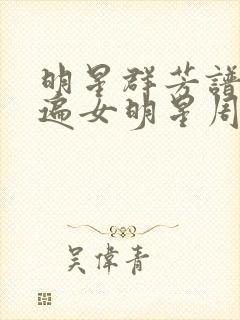 明星群芳譜
遍女明星周
吳偉青